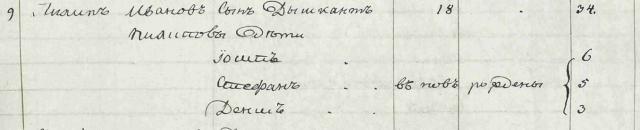 9 Пилипъ Ивановъ сынъ Дышкантъ 18 . 34.
Пилиповы дѣти
Іосипъ . 6
Стефанъ . въ новъ рождены 5
Денисъ . . 3